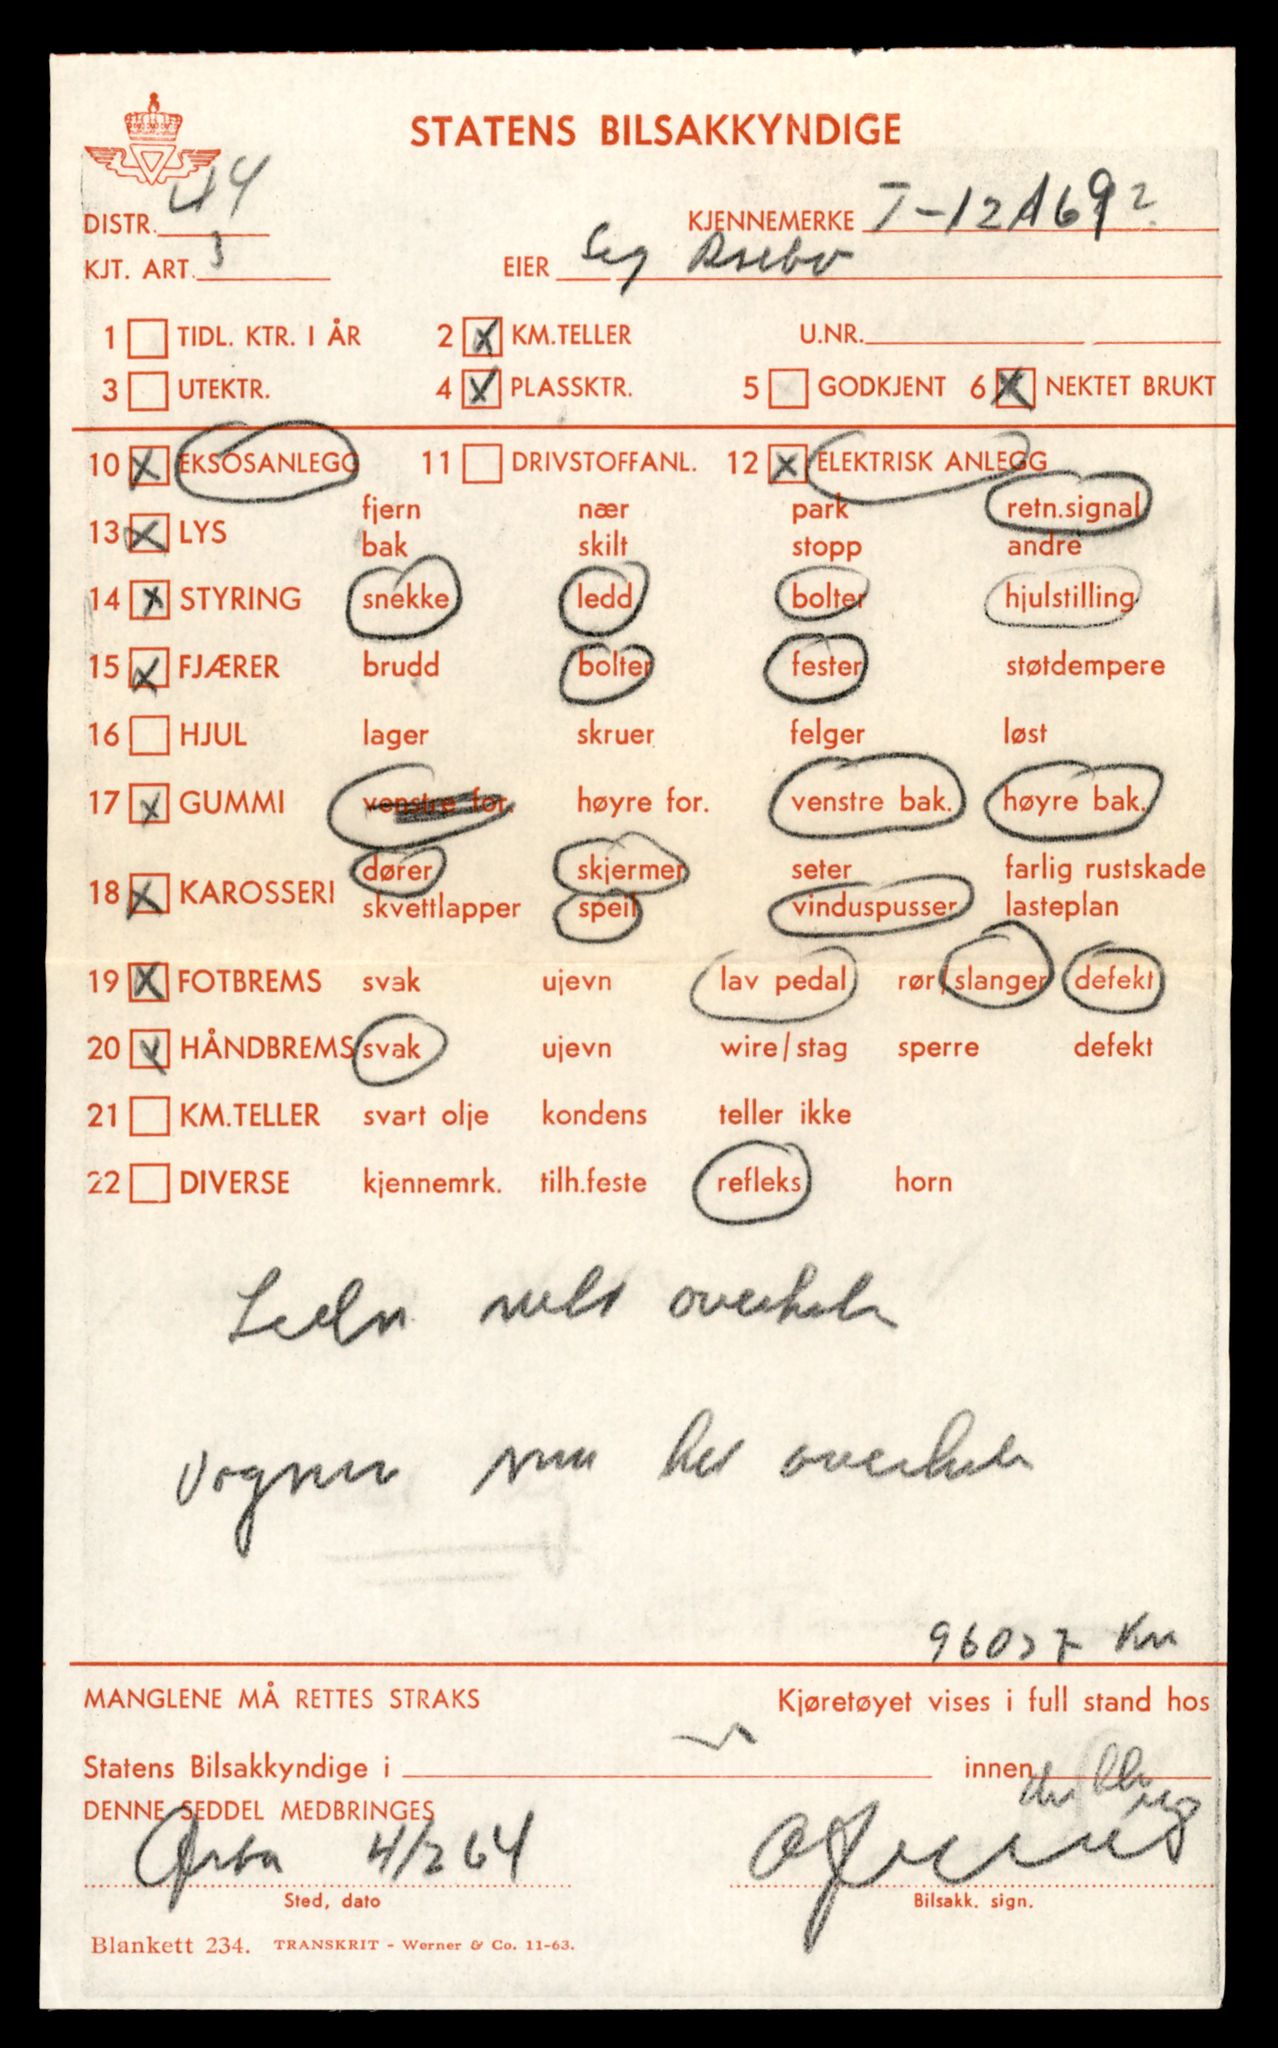 STATENS BILSAKKYNDIGE
DISTR. 44
KJENNEMERKE T-12169
KJT. ART. 3
EIER
1 TIDL. KTR. I ÅR 2 X KM.TELLER U.NR.
3 UTEKTR. 4 X PLASSKTR. 5 GODKJENT 6 X NEKTET BRUKT
10 X EKSOSANLEGG 11 DRIVSTOFFANL. 12 X ELEKTRISK ANLEGG
fjern nær park retn.signal
13 X LYS
bak skilt stopp andre
14 X STYRING snekke ledd bolter hjulstilling
15 X FJÆRER brudd bolter fester støtdempere
16 HJUL lager skruer felger løst
17 X GUMMI venstre for. høyre for. venstre bak. høyre bak.
dører skjermer seter farlig rustskade
18 X KAROSSERI
skvettlapper speil vinduspusser lasteplan
19 X FOTBREMS svak ujevn lav pedal rør/slanger defekt
20 X HÅNDBREMS svak ujevn wire/stag sperre defekt
21 KM.TELLER svart olje kondens teller ikke
22 DIVERSE kjennemrk. tilh.feste refleks horn
overhales
Vognen overhales
Km
MANGLENE MÅ RETTES STRAKS Kjøretøyet vises i full stand hos
Statens Bilsakkyndige i innen
DENNE SEDDEL MEDBRINGES
Ørsta 4/2 64
Sted, dato Bilsakk. sign.
Blankett 234. TRANSKRIT - Werner & Co. 11-63.